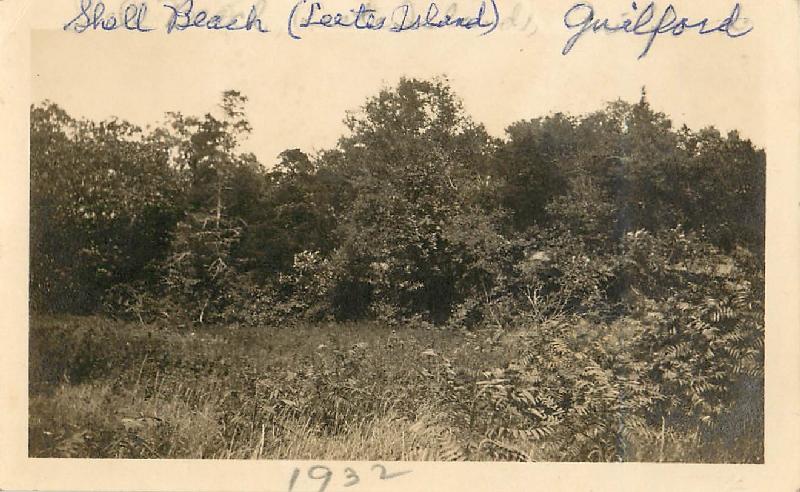 Shell Beach (Leetes Island) Guilford
1932